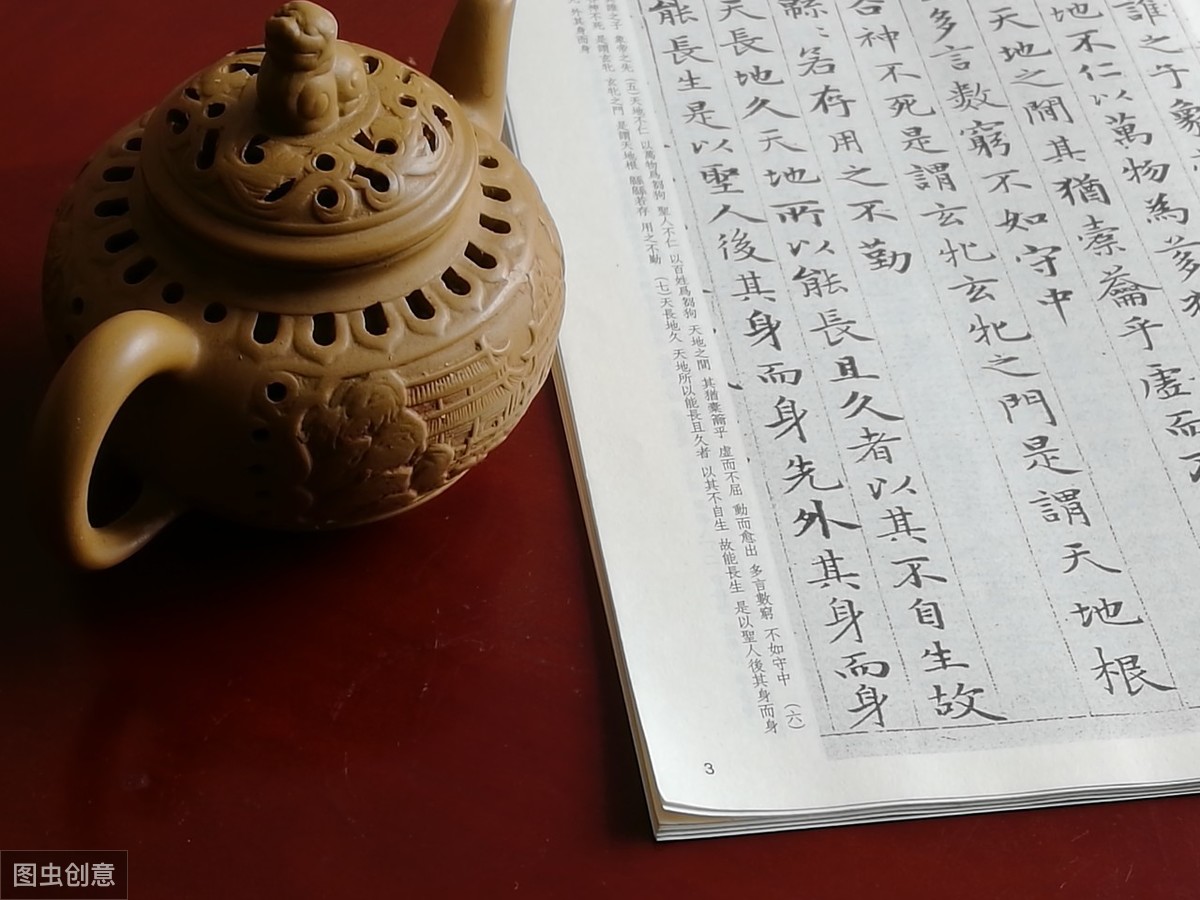 誰之子象
地不仁以萬物為芻狗
天地之間其猶橐籥乎虛而不
多言數窮不如守中
谷神不死是謂玄牝玄牝之門是謂天地根
緜〻若存用之不勤
天長地久天地所以能長且久者以其不自生故
能長生是以聖人後其身而身先外其身而身
誰之子 象帝之先 (五)天地不仁 以萬物爲芻狗 聖人不仁 以百姓爲芻狗 天地之間 其猶橐籥乎 虛而不屈 動而愈出 多言數窮 不如守中 (六)
神不死 是謂玄牝 玄牝之門 是謂天地根 緜緜若存 用之不勤 (七)天長地久 天地所以能長且久者 以其不自生 故能長生 是以聖人後其身而身
外其身而身
3
图虫创意